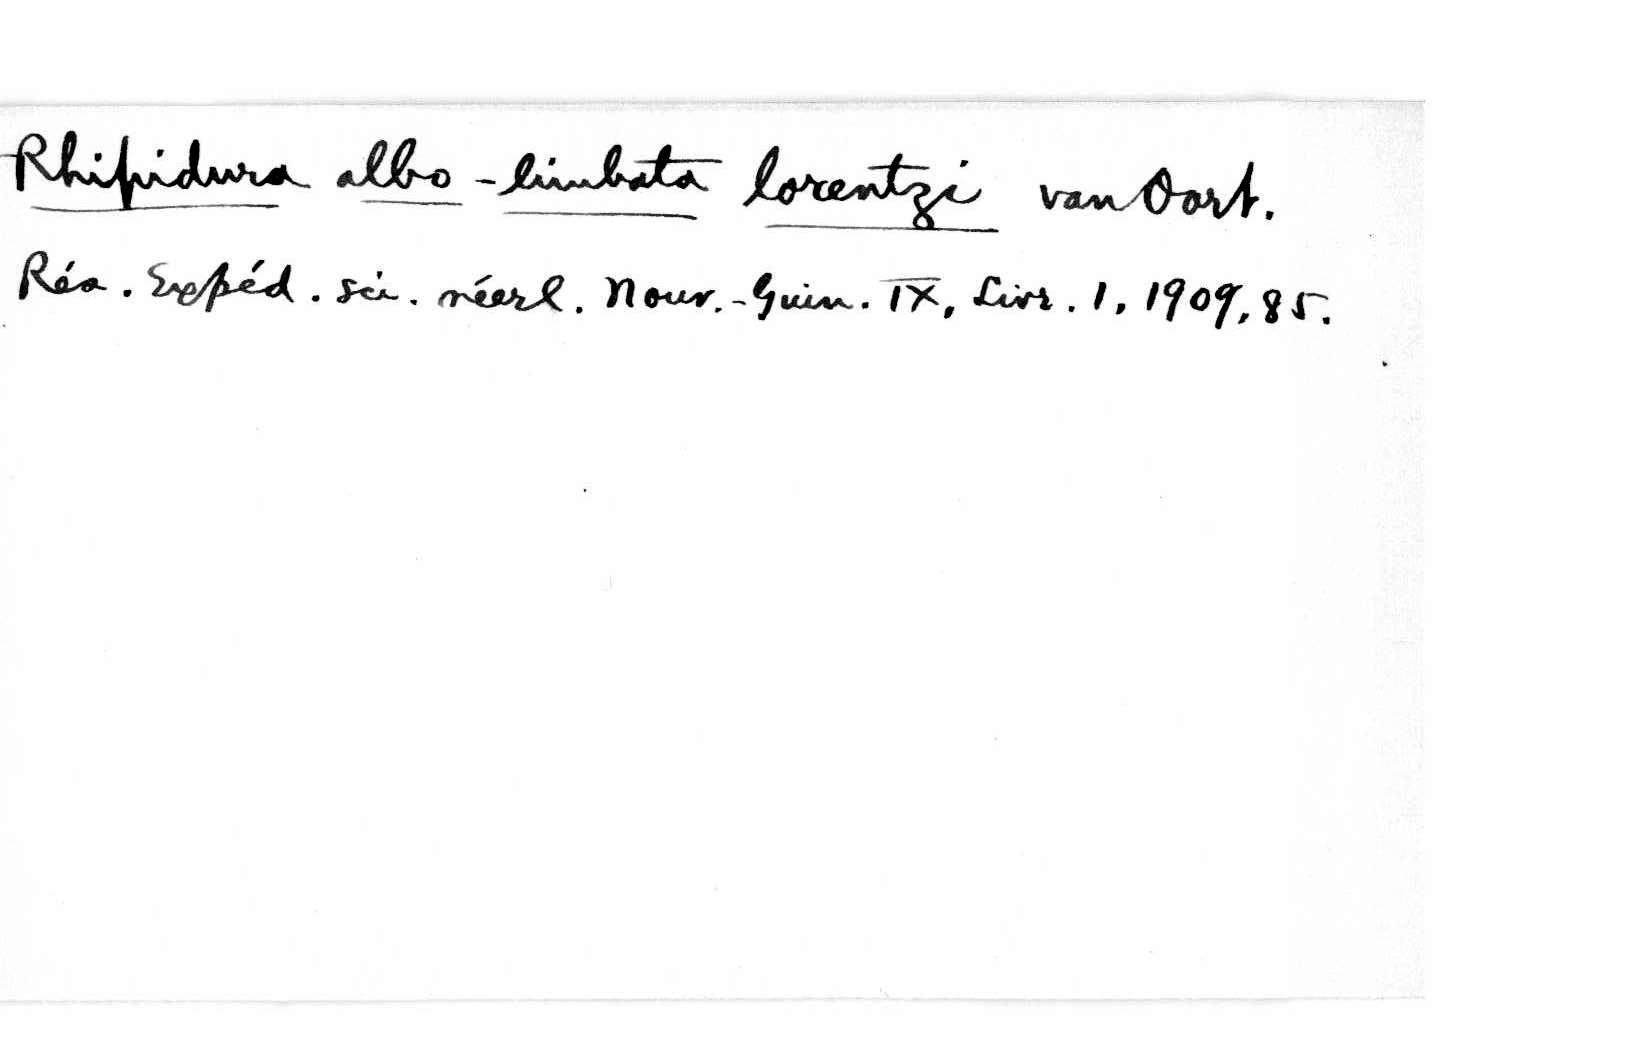 Rhipidura albo-limbata lorentzi van Oort.
Rés. Expéd. sci. néerl. Nouv.-Guin. IX, Livr. 1, 1909, 85.